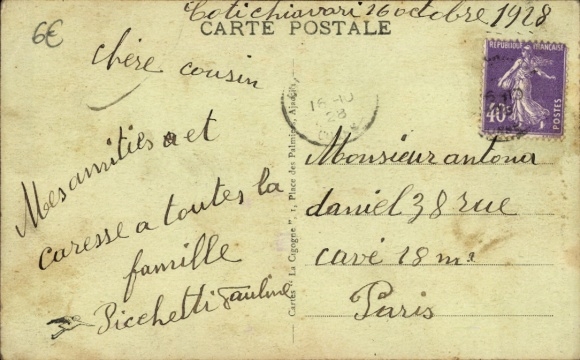 Coti chiavari 16 octobre 1928
6€
CARTE POSTALE
chère cousin
Mes amitiés et
caresse a toutes la
famille
Picchetti Pauline
Cartes "La Cigogne", 1, Place des Palmiers, Ajaccio.
16-10
28
REPUBLIQUE FRANCAISE
40c
POSTES
Monsieur antona
daniel 38 rue
cavé 18 me
Paris